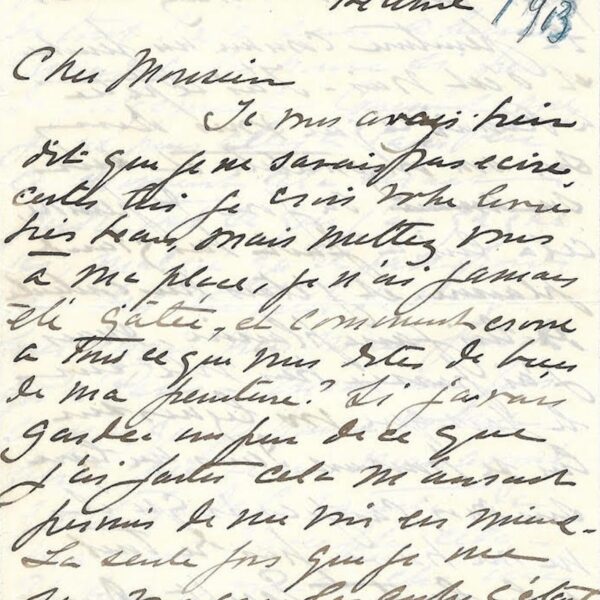 1913
Cher Monsieur
Je vous avais bien
dit que je ne savais pas ecire
certes oui je crois votre livre
très beau, mais mettez vous
à ma place, je n'ai jamais
été gâtée, et comment croire
a tous ce que vous dites de bien
de ma peinture? Si j'avais
garder un peu de ce que
j'ai faites cela m'aurait
permis de me voir en mieux.
La seule fois que je me
c'était